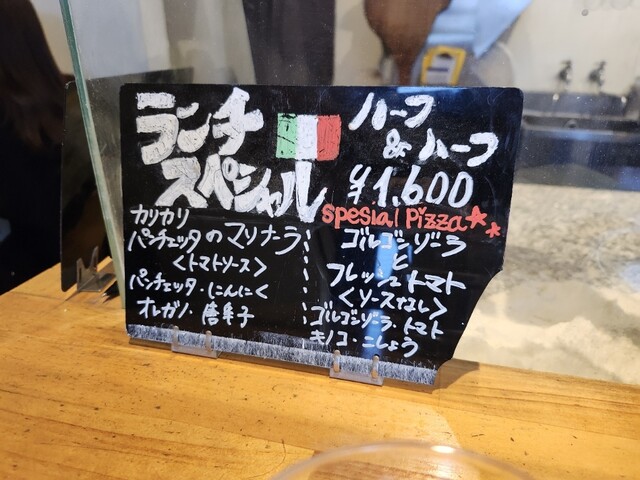 ランチ
スペシャル
ハーフ
& ハーフ
¥1,600
spesial Pizza
カリカリ
パンチェッタのマリナーラ
<トマトソース>
パンチェッタ・にんにく
オレガノ・唐辛子
ゴルゴンゾーラ
と
フレッシュトマト
<ソースなし>
ゴルゴンゾーラ・トマト
キノコ・こしょう